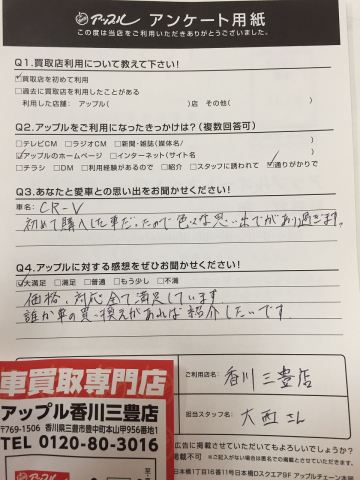 アップル アンケート用紙
この度は当店をご利用いただきありがとうございました。
Q1.買取店利用について教えて下さい!
☑買取店を初めて利用
□過去に買取店を利用したことがある
利用した店舗： アップル( )店 その他( )
Q2.アップルをご利用になったきっかけは?(複数回答可)
□テレビCM □ラジオCM □新聞・雑誌(媒体名/ )
☑アップルのホームページ □インターネット(サイト名 )
□チラシ □DM □利用経験があるので □紹介 □スタッフに誘われて ☑通りがかりで
Q3.あなたと愛車との思い出をお聞かせください!
車名： CR-V
初めて購入した車だったので色々な思い出でがあり過ぎます。
Q4.アップルに対する感想をぜひお聞かせください!
☑大満足 □満足 □普通 □もう少し □不満
価格、対応全て満足しています
誰か車の買い換えがあれば紹介したいです。
車買取専門店
アップル香川三豊店
〒769-1506 香川県三豊市豊中町本山甲956番地
TEL 0120-80-3016
ご利用店名： 香川三豊店
担当スタッフ名： 大西さん
広告に掲載させていただいてもよろしいでしょうか?
掲載不可 ※ご記入がない場合は匿名での掲載とさせていただきます。
日本橋1丁目16番11号日本橋Dスクエア9F アップルチェーン本部